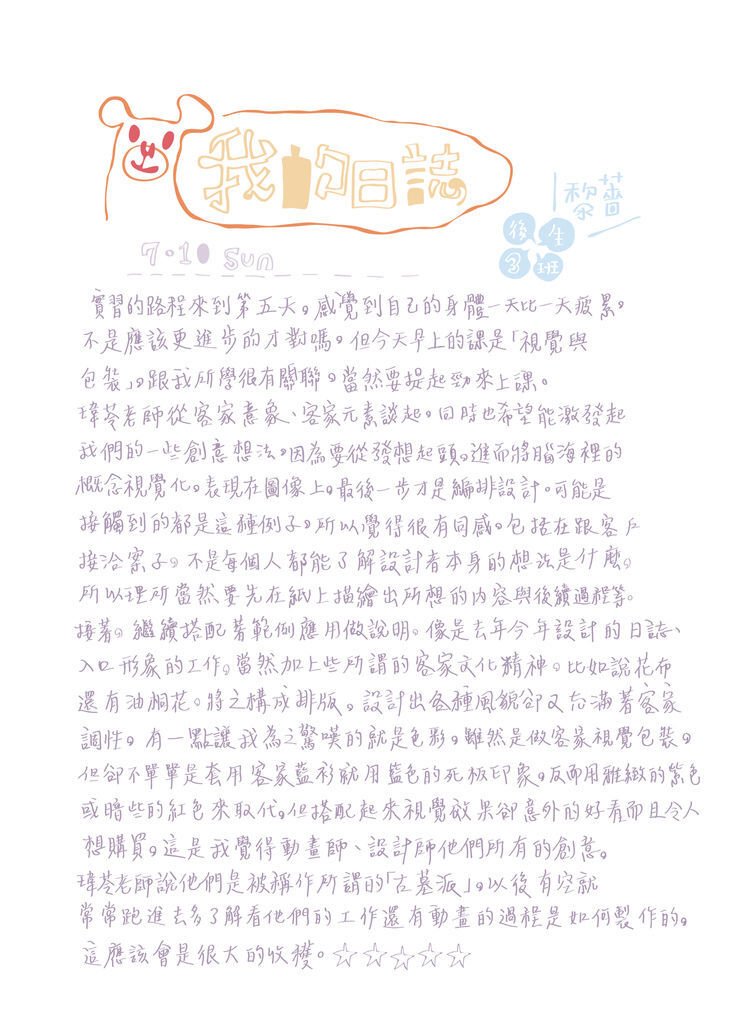 我的日誌
黎薔
後生
3班
7.10 Sun
實習的路程來到第五天。感覺到自己的身體一天比一天疲累。
不是應該更進步的才對嗎。但今天早上的課是「視覺與
包裝」。跟我所學很有關聯。當然要提起勁來上課。
瑋苓老師從客家意象、客家元素談起。同時也希望能激發起
我們的一些創意想法。因為要從發想起頭。進而將腦海裡的
概念視覺化。表現在圖像上。最後一步才是編排設計。可能是
接觸到的都是這種例子。所以覺得很有同感。包括在跟客戶
接洽案子。不是每個人都能了解設計者本身的想法是什麼。
所以理所當然要先在紙上描繪出所想的內容與後續過程等。
接著。繼續搭配著範例應用做說明。像是去年今年設計的日誌、
入口形象的工作。當然加上些所謂的客家文化精神。比如說花布
還有油桐花。將之構成排版。設計出各種風貌卻又充滿著客家
調性。有一點讓我為之驚嘆的就是色彩。雖然是做客家視覺包裝。
但卻不單單是套用客家藍衫就用藍色的死板印象。反而用雅緻的紫色
或暗些的紅色來取代。但搭配起來視覺效果卻意外的好看而且令人
想購買。這是我覺得動畫師、設計師他們所有的創意。
瑋苓老師說他們是被稱作所謂的「古墓派」。以後有空就
常常跑進去多了解看他們的工作還有動畫的過程是如何製作的。
這應該會是很大的收穫。☆☆☆☆☆